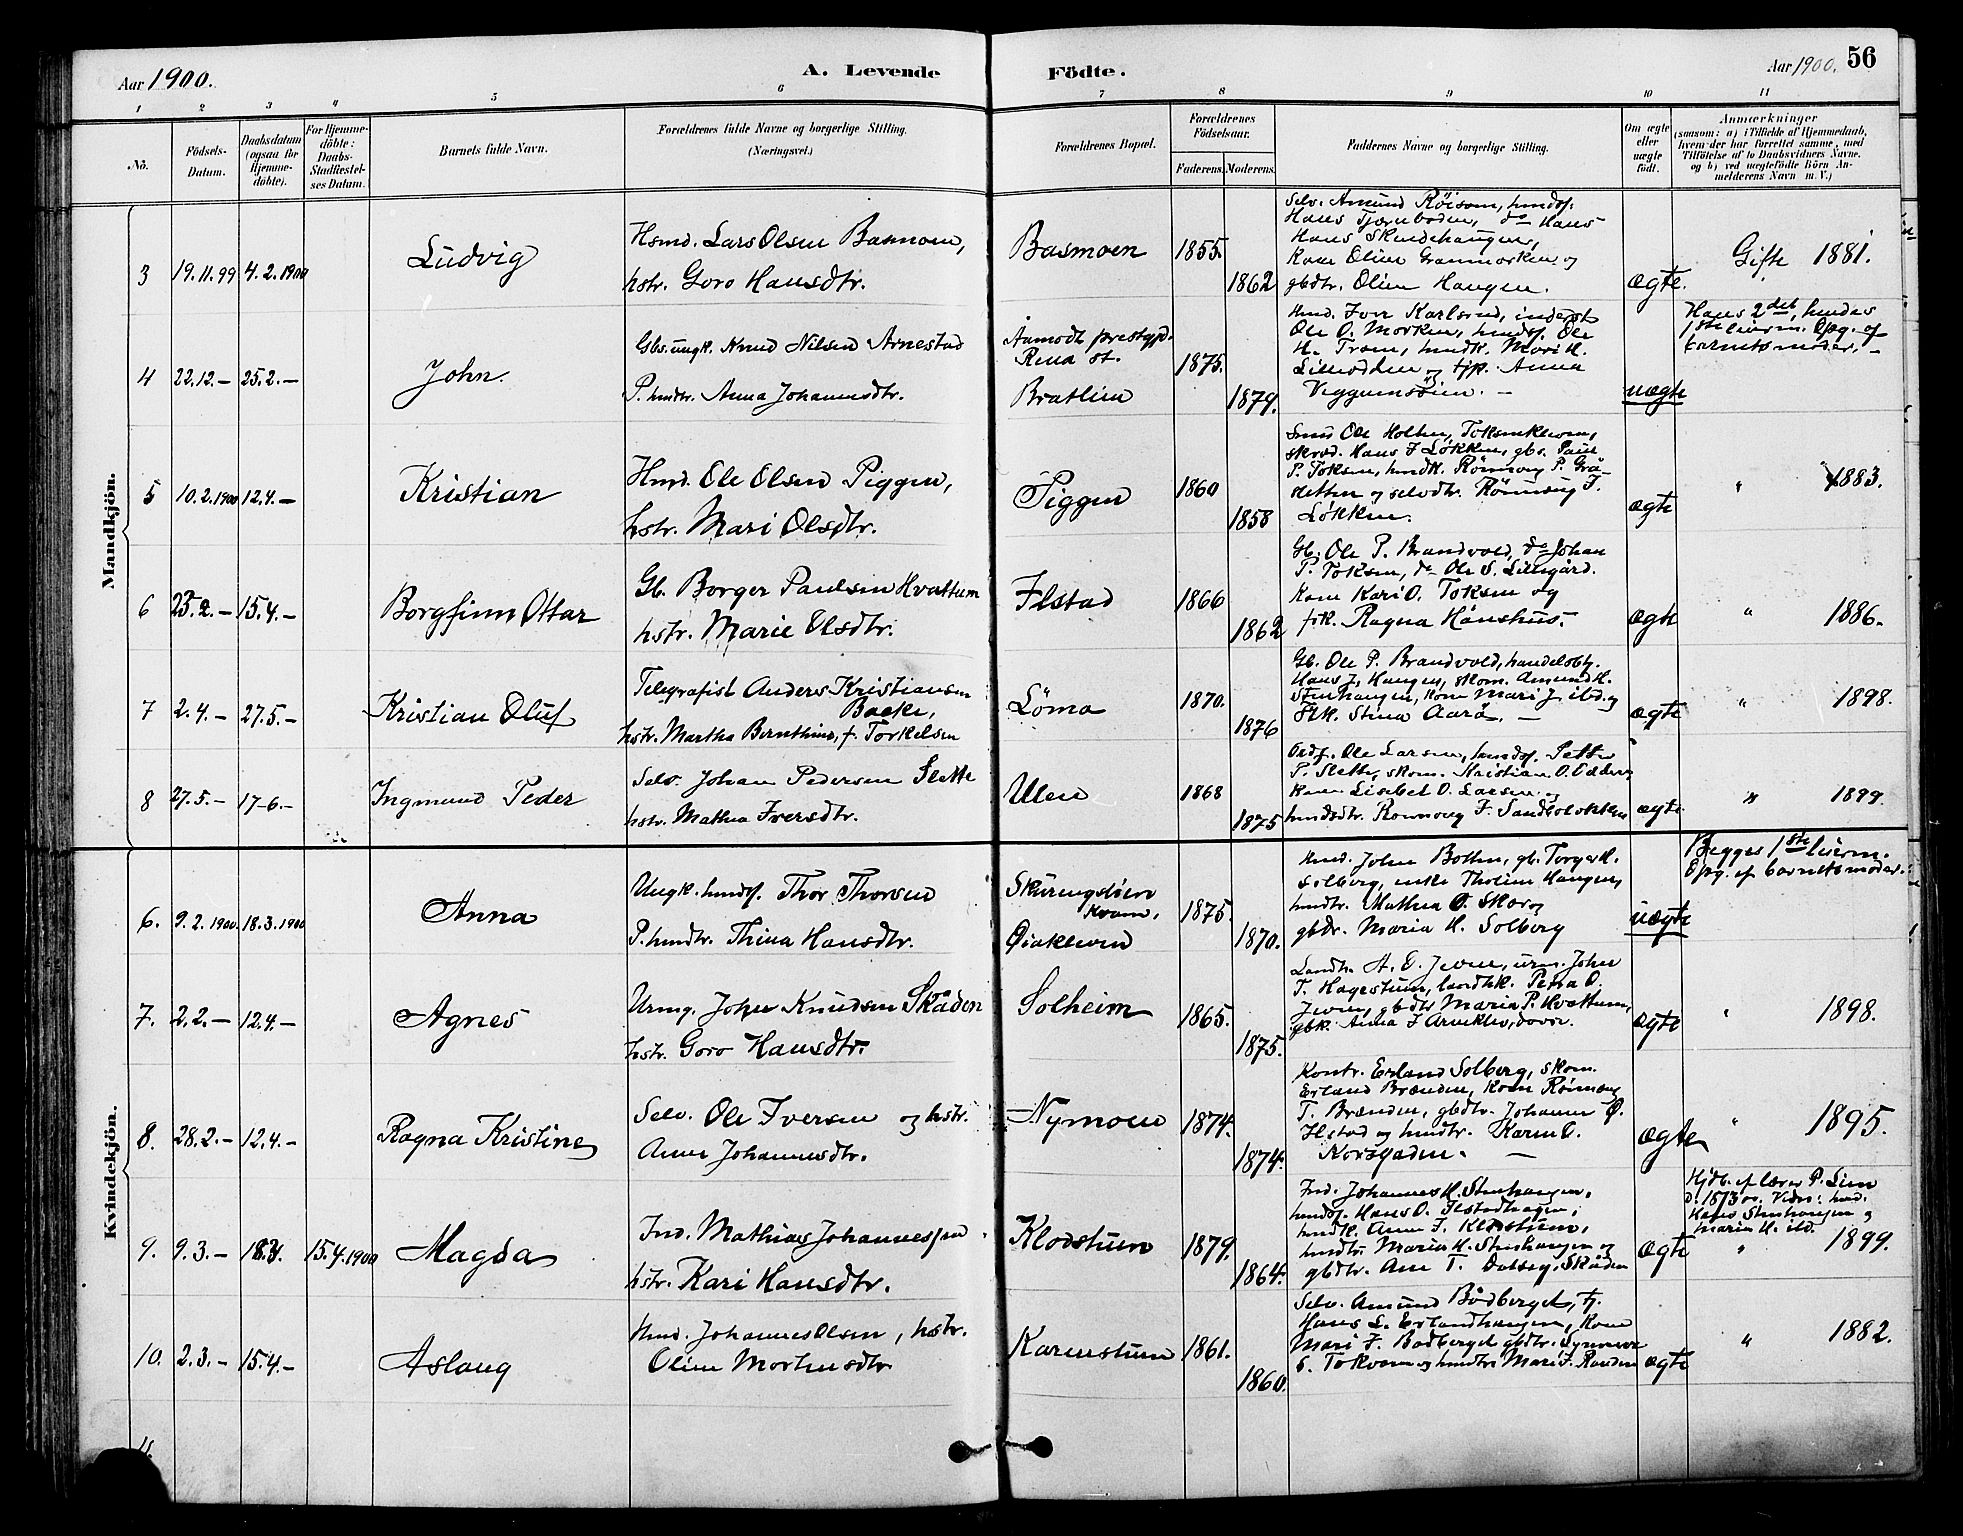 Aar 1900.
A. Levende Födte.
Aar 1900. 56
1 2 3 4 5 6 7 8 9 10 11
No.
Födsels-Datum.
Daabsdatum (ogsaa for Hjemme-döbte).
For Hjemme-döbte: Daabs-Stadfæstel-ses Datum.
Barnets fulde Navn.
Forældrenes fulde Navne og borgerlige Stilling. (Næringsvei.)
Forældrenes Bopæl.
Forældrenes Födselsaar.
Faderens. Moderens.
Faddernes Navne og borgerlige Stilling.
Om ægte eller uægte födt.
Anmærkninger (saasom: a) i Tilfælde af Hjemmedaab, hvem der har forrettet samme, med Tilföielse af to Daabsvidners Navne, og b) ved uægtefödte Börn An-melderens Navn m. V.)
Mandkjön.
3 19.11.99 4.2.1900 Ludvig
Hsmd. Lars Olsen Basmoen,
hstr. Goro Hansdtr.
Basmoen 1855. 1862
Selv. Amund Röisom, hmdsf.
Hans Tjærnboden, do Hans
Hans Skudehaugen,
Kone Oline Granmorken og
gbdtr. Oline Haugen.
ægte. Gifte 1881.
4 22.12.— 25.2.— John.
Gbs. ungk. Knud Nilsen Arnestad
P. hmdtr. Anna Johannesdtr.
Aamodt prestgjd.
Rena st.
Bratlien
1875. 1879.
Hmd. Iver Karlsrud, inderst
Ole O. Morken, hmdsf. Ole
H. Trom, hmdk. Mari H.
Lillerödden og tjp. Anna
Veggumsöien. —
uægte
Hans 2det, hendes
1ste leierm. Opg. af
barnets moder. —
5 10.2.1900 12.4.— Kristian
Hmd. Ole Olsen Piggen,
hstr. Mari Olsdtr.
Piggen 1860 1858
Smed Ole Holten, Toksenkleven,
skræd. Hans J Løkken, gbs. Paul
P. Toksen, hmdk. Rönnaug P. Grå-
sletten og selvdtr. Rönnaug J.
Løkken.
ægte " 1883.
6 25.2.— 15.4.— Borgfinn Ottar
Gb. Borger Paulsen Hvattum
hstr. Marie Olsdtr.
Ilstad 1866 1862
Gb. Ole P. Brandvold, do Johan
P. Toksen, do Ole S. Lillegård.
Kone Kari O. Toksen og
frk. Ragna Hönshus.
ægte " 1886.
7 2.4.— 27.5.— Kristian Oluf
Telegrafist Anders Kristiansen
Bakke,
hstr. Martha Bernthine, f. Torkelsen
Löma 1870. 1876
Gb. Ole P. Brandvold, handelsbtj.
Hans J. Haugen, skom. Amund H.
Stenhaugen, kone Mari J. ibd. og
Frk. Stina Aarö. —
ægte " 1898.
8 27.5.— 17-6.— Ingmund Peder
Selv. Johan Pedersen Slette
hstr. Mathea Iversdtr.
Ulen 1868 1875
Ordf. Ole Larsen, hmdsf. Petter
P. Slette, skom. Kristian O. Odden,
Kone Lisbet O. Larsen og
hmdsdtr. Rönnaug J. Sandbolökken
ægte " 1899.
Kvindekjön.
6. 9.2.1900. 18.3.1900 Anna
Ungk. hmdsf. Thor Thorsen
P. hmdtr. Thina Hansdtr.
Skurengslöien
Kvam.
Öiakleven
1875. 1870.
Hmd. John Botten, gb. Torger H.
Solberg, enke Tholine Haugen,
hmdtr. Mathea O. Skar og
gbdr. Maria H. Solberg
uægte
Begges 1ste leierm.
Opg. af barnets moder.
7. 2.2.— 12.4.— Agnes
Urmg. John Knudsen Skåden
hstr. Goro Hansdtr.
Solheim 1865. 1875.
Landh. A. O. Jevne, urm. John
T. Hagestuen, landhk. Petra O.
Jevne, gbdtr Maria P. Hvattum,
gbk. Anna J Arneklev, Dovre.
ægte " 1898.
8. 28.2.— 12.4.— Ragna Kristine
Selv. Ole Iversen og hstr.
Anne Johannesdtr.
Nymoen 1874. 1874.
Kontr. Erland Solberg, skom.
Erland Brænden, kone Rönnaug
T. Brænden, gbdtr. Johanne O.
Ilstad og hmdtr. Karen O.
Korsgaden. —
ægte " 1895.
9. 9.3.— 18.3. 15.4.1900 Magda
Ind. Mathias Johannessen
hstr. Kari Hansdtr.
Klodstuen 1879. 1864.
Ind. Johannes H. Stenhaugen,
hmdsf. Hans O. Ilstadhagen,
hmdk. Anne J. Klodstuen,
hmdtr. Maria H. Stenhaugen og
gbdtr. Ane T. Dalseg, Skåden
ægte
Hjdb. af lærer P. Lien
d. 18/3 00. Vidn: hmd.
Hans Stenhaugen og
Maria H. ibd.
" 1899.
10. 2.3.— 15.4.— Aslaug
Hmd. Johannes Olsen, hstr.
Oline Mortensdtr
Karenstuen 1861. 1860.
Selv. Amund Bådberget, tj.
Hans L. Erlandhaugen, Kone
Mari J. Bådberget gbdtr. Synneve
S. Tokvam og hmdtr Mari J. Randen
ægte " 1882.
11.